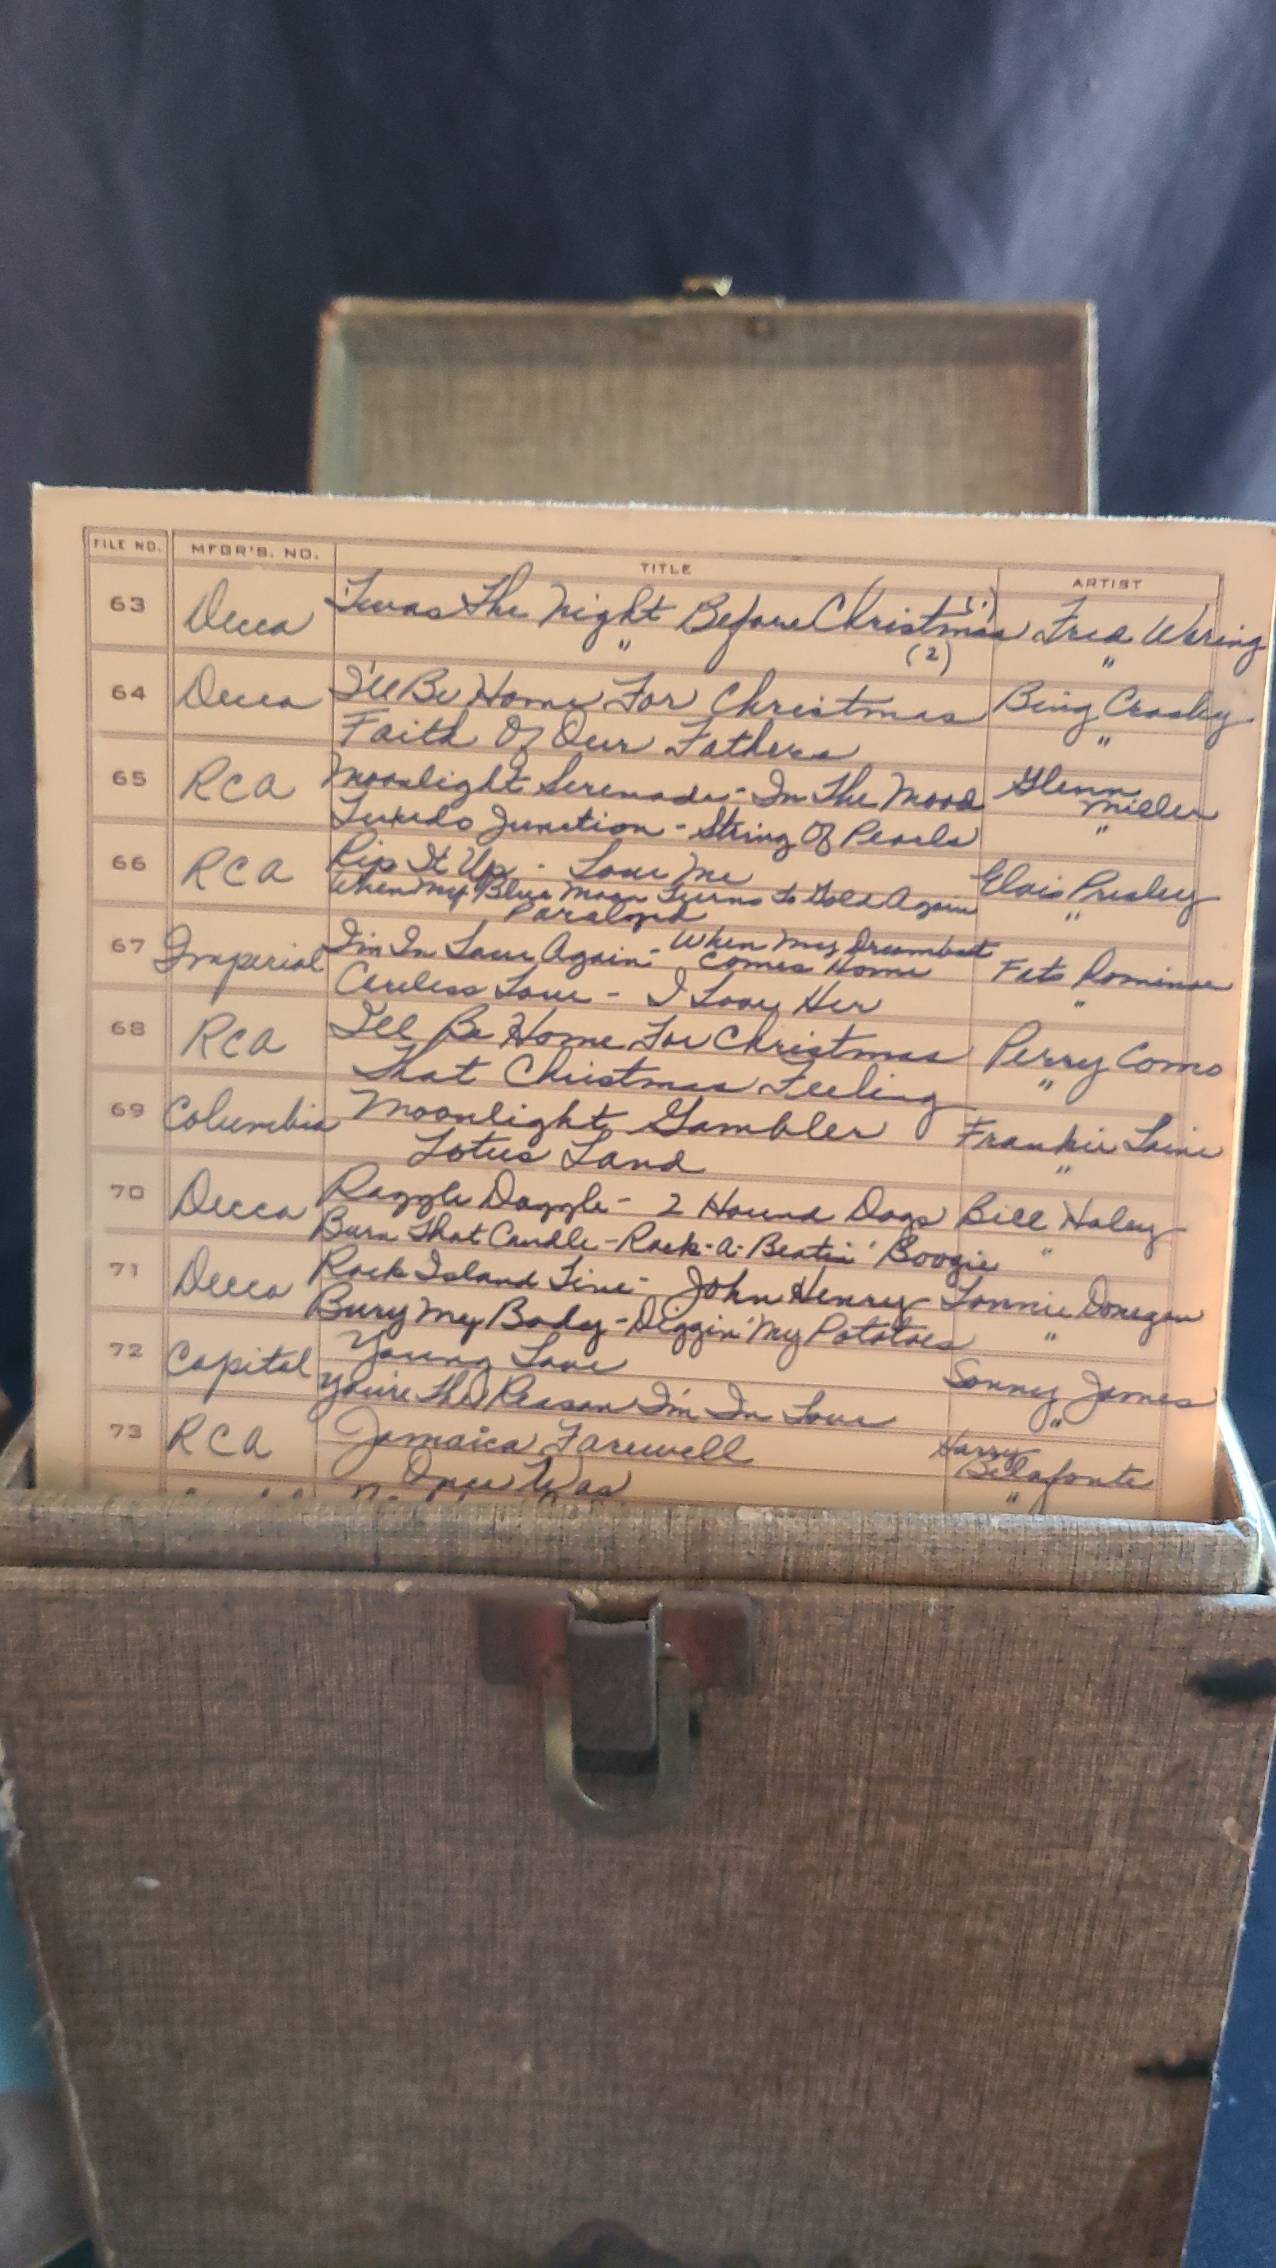 FILE NO. MFGR'S. NO. TITLE ARTIST
63 Decca Twas The Night Before Christmas (1) Fred Waring
" (2) "
64 Decca I'll Be Home For Christmas Bing Crosby
Faith Of Our Fathers "
65 RCA Moonlight Serenade - In The Mood Glenn Miller
Tuxedo Junction - String Of Pearls "
66 RCA Rip It Up - Love Me Elvis Presley
When My Blue Moon Turns to Gold Again "
Paralyzed
67 Imperial I'm In Love Again - When My Dreamboat Comes Home Fats Domino
Careless Love - I Love Her "
68 RCA I'll Be Home For Christmas Perry Como
That Christmas Feeling "
69 Columbia Moonlight Gambler Frankie Laine
Lotus Land "
70 Decca Razzle Dazzle - 2 Hound Dogs Bill Haley
Burn That Candle - Rock-A-Beatin' Boogie "
71 Decca Rock Island Line - John Henry Lonnie Donegan
Bury My Body - Diggin' My Potatoes "
72 Capital Young Love Sonny James
You're The Reason I'm In Love "
73 RCA Jamaica Farewell Harry Belafonte
Once Was "